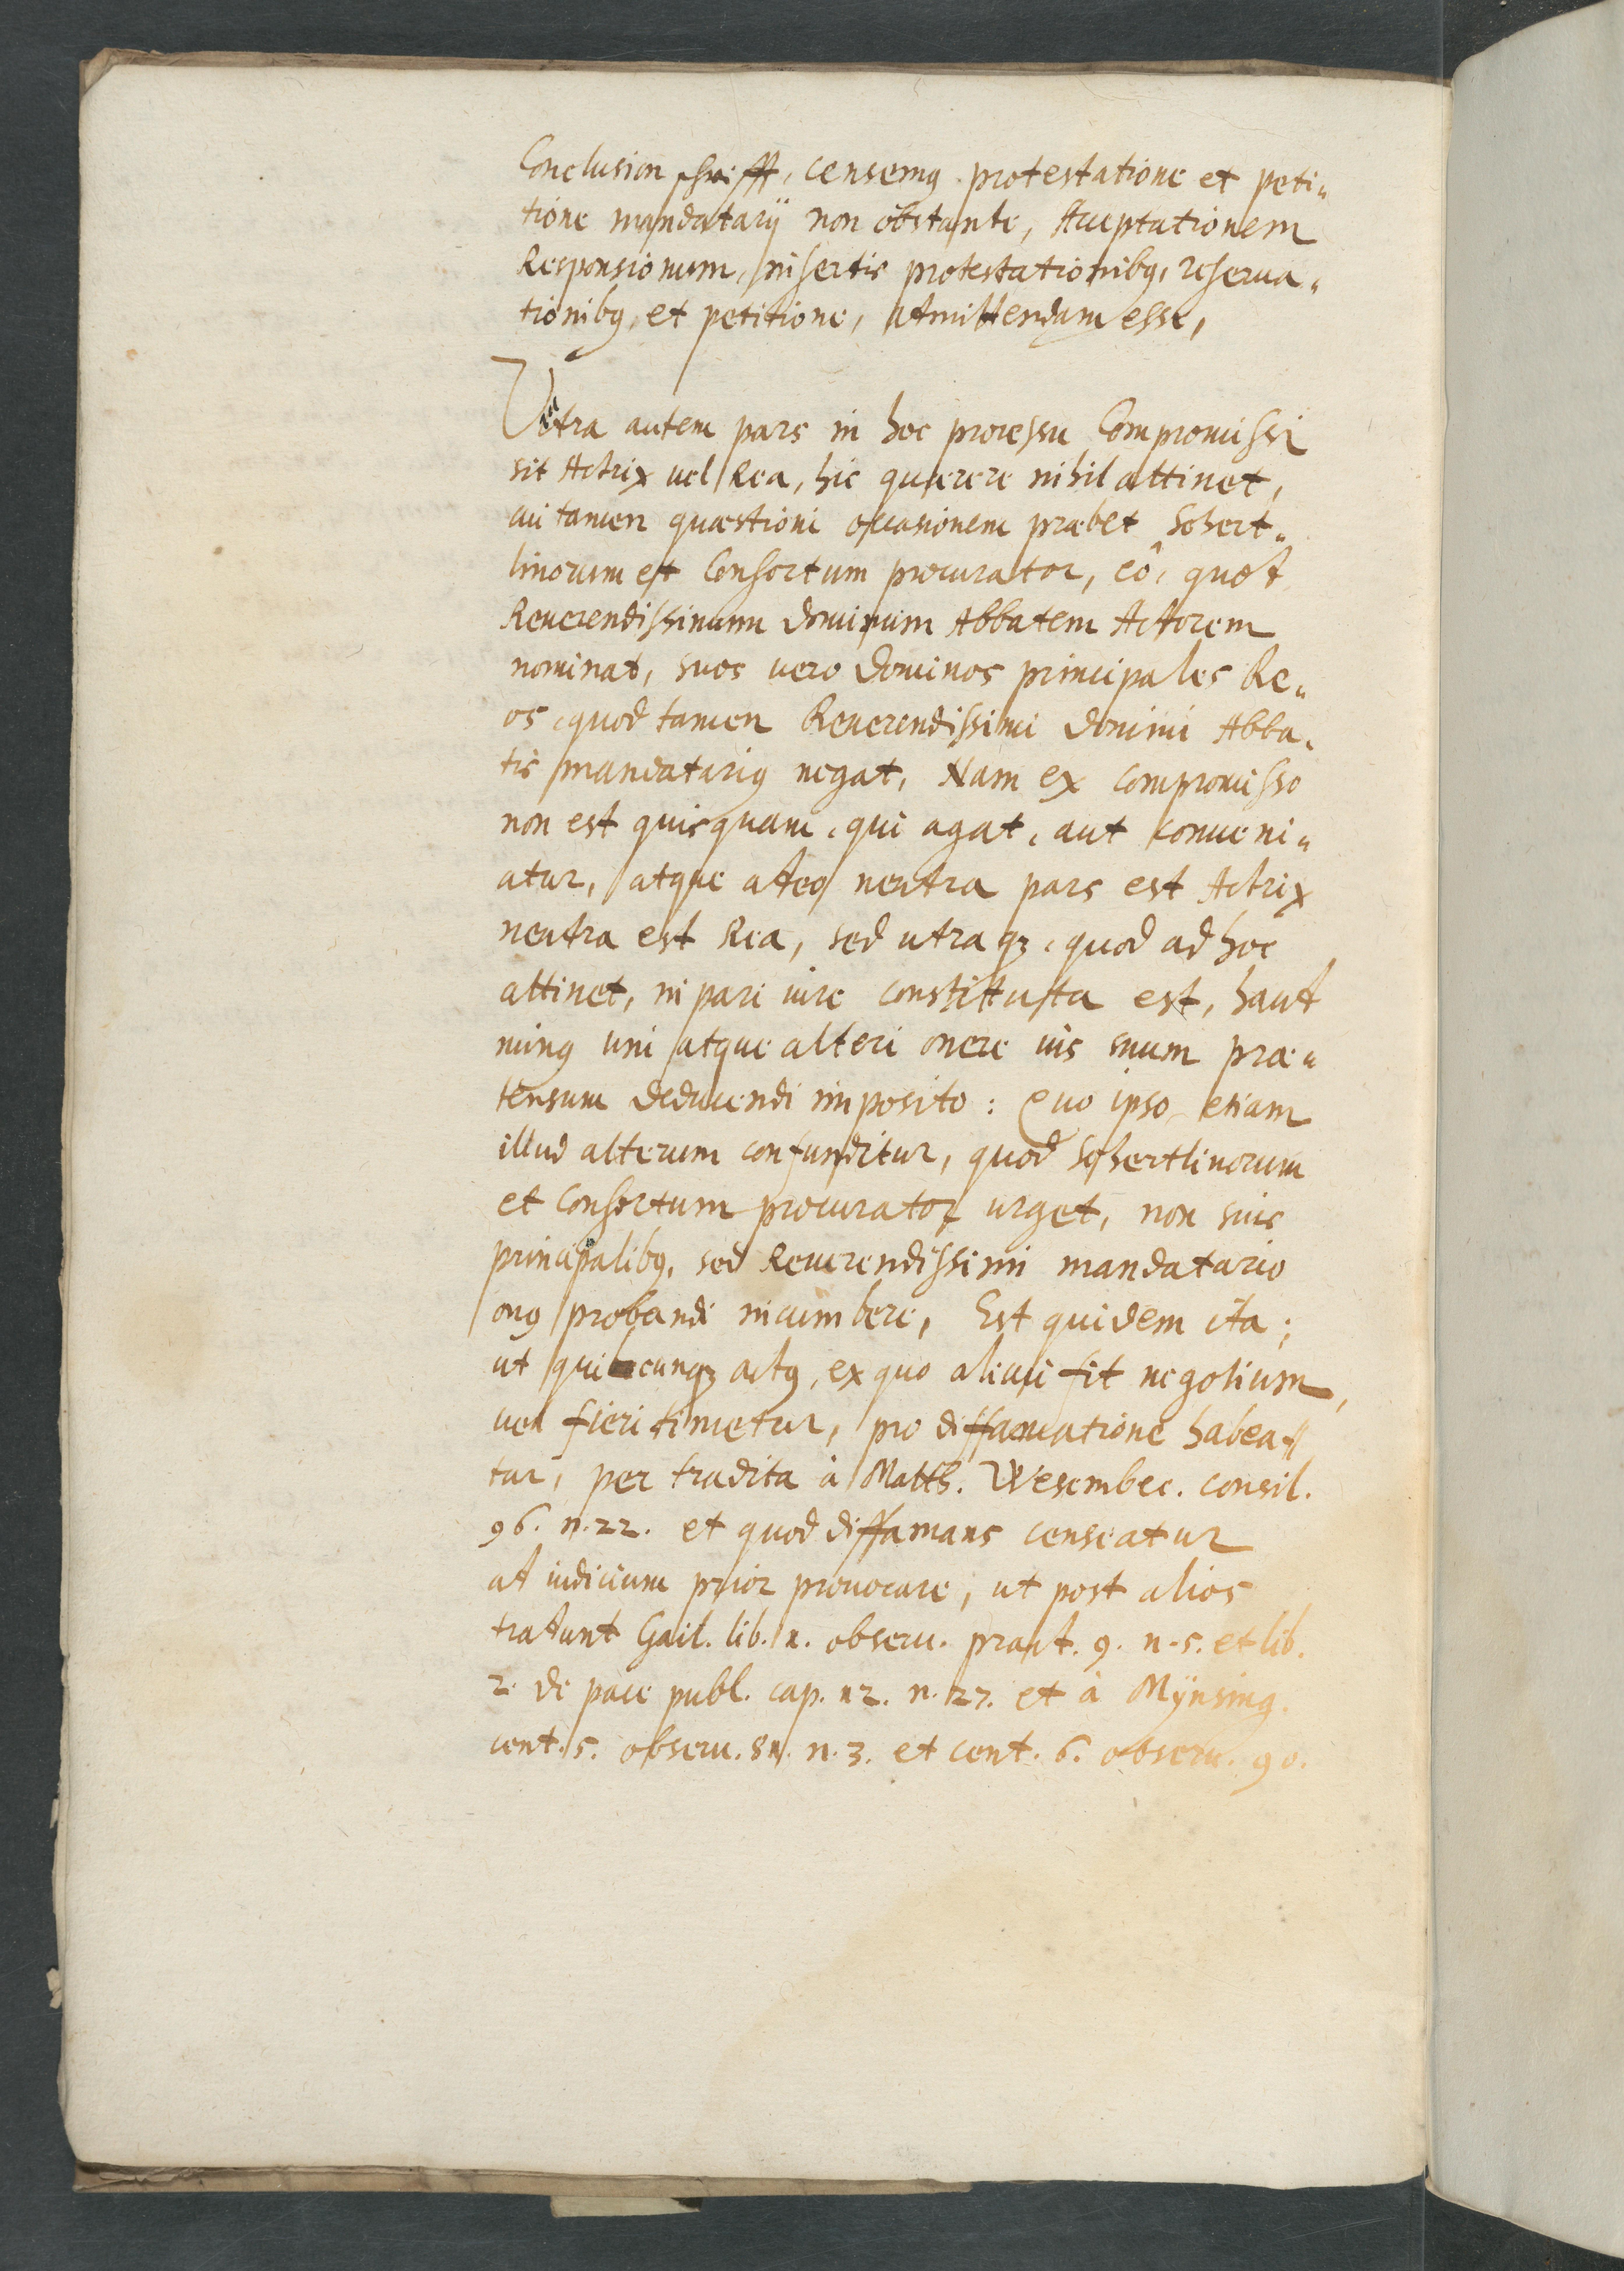 Conclusion schrifft, censemꝰ protestatione et peti„
tione mandatarij non obstante, Acceptationem
Responsionum, insertis protestationibꝰ, reserua„
tionibꝰ, et petitione, admittendam esse,
Vtra autem pars in hoc processu Compromissi
sit Actrix uel Rea, hic quærere nihil attinet,
cui tamen quæstioni occasionem præbet Schert„
linorum et Consortum procurator, eô, quod
Reuerendissimum dominum Abbatem Actorem
nominat, suos uero dominos principales Re„
os, quod tamen Reuerendissimi domini Abba„
tis mandatariꝰ negat, Nam ex compromisso
non est quisquam, qui agat, aut conueni„
atur, atque adeo neutra pars est Actrix
neutra est Rea, sed utraqꝫ, quod ad hoc
attinet, in pari iure constituta est, haud
minꝰ uni atque alteri onere ius suum præ„
tensum deducendi imposito: Quo ipso etiam
illud alterum confunditur, quod Schertlinorum
et Consortum procurator urget, non suis
principalibꝰ, sed Reuerendissimi mandatario
onꝰ probandi incumbere, Est quidem ita;
ut quicunqꝫ actꝰ, ex quo alicui fit negotium,
uel fieri timetur, pro diffamatione habea„
tur, per tradita à Matth. Wesembec. consil.
96. n. 22. et quod diffamans censeatur
ad iudicium prior prouocare, ut post alios
tradunt Gail. lib. 1. obseru. pract. 9. n. 5. et lib.
2. de pace publ. cap. 12. n. 27. et à Mÿnsing.
cent. 5. obseru. 81. n. 3. et cent. 6. obseru. 90.